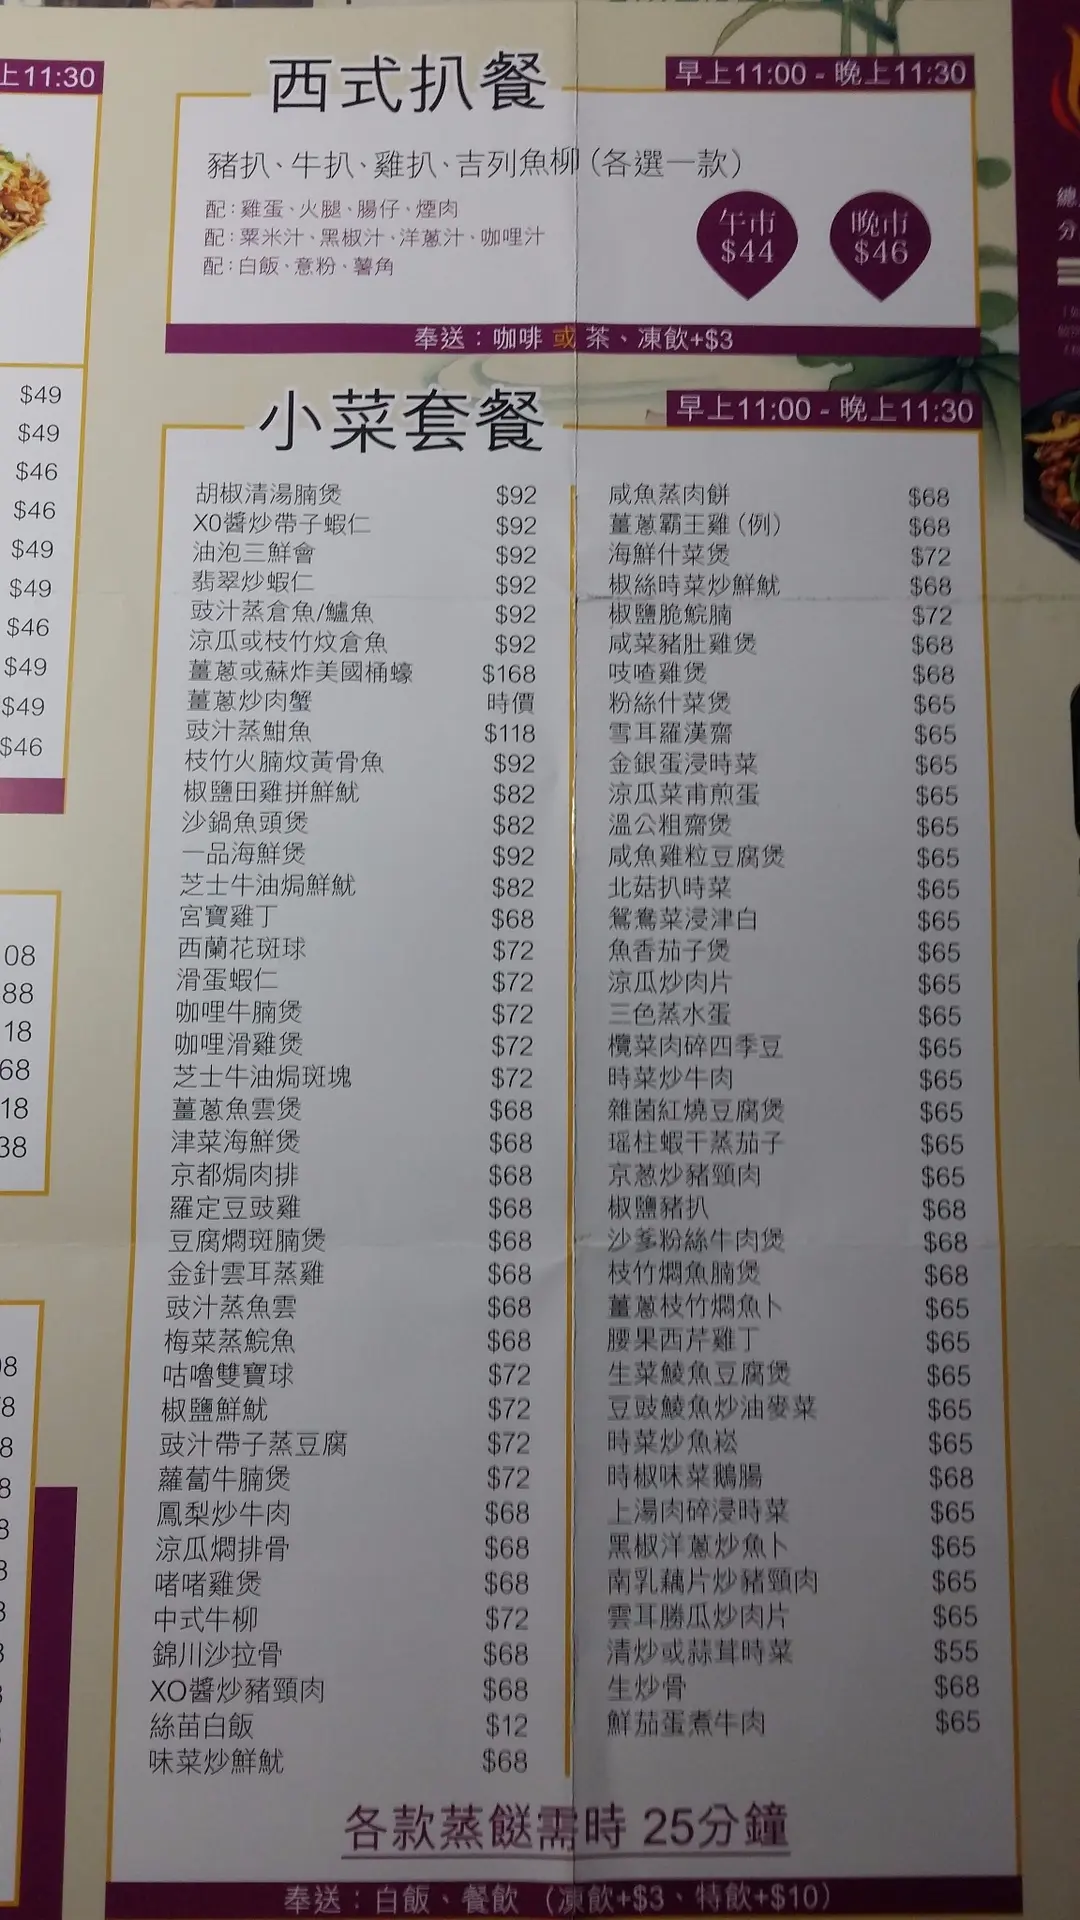 上11:30
西式扒餐
早上11:00 - 晚上11:30
豬扒、牛扒、雞扒、吉列魚柳（各選一款）
配：雞蛋、火腿、腸仔、煙肉
配：粟米汁、黑椒汁、洋蔥汁、咖哩汁
配：白飯、意粉、薯角
午市
$44
晚市
$46
奉送：咖啡 或 茶、凍飲+$3
小菜套餐
早上11:00 - 晚上11:30
胡椒清湯腩煲 $92
XO醬炒帶子蝦仁 $92
油泡三鮮會 $92
翡翠炒蝦仁 $92
豉汁蒸倉魚/鱸魚 $92
涼瓜或枝竹炆倉魚 $92
薑蔥或蘇炸美國桶蠔 $168
薑蔥炒肉蟹 時價
豉汁蒸魽魚 $118
枝竹火腩炆黃骨魚 $92
椒鹽田雞拼鮮魷 $82
沙鍋魚頭煲 $82
一品海鮮煲 $92
芝士牛油焗鮮魷 $82
宮寶雞丁 $68
西蘭花斑球 $72
滑蛋蝦仁 $72
咖哩牛腩煲 $72
咖哩滑雞煲 $72
芝士牛油焗斑塊 $72
薑蔥魚雲煲 $68
津菜海鮮煲 $68
京都焗肉排 $68
羅定豆豉雞 $68
豆腐燜斑腩煲 $68
金針雲耳蒸雞 $68
豉汁蒸魚雲 $68
梅菜蒸鯇魚 $68
咕嚕雙寶球 $72
椒鹽鮮魷 $72
豉汁帶子蒸豆腐 $72
蘿蔔牛腩煲 $72
鳳梨炒牛肉 $68
涼瓜燜排骨 $68
啫啫雞煲 $68
中式牛柳 $72
錦川沙拉骨 $68
XO醬炒豬頸肉 $68
絲苗白飯 $12
味菜炒鮮魷 $68
咸魚蒸肉餅 $68
薑蔥霸王雞（例） $68
海鮮什菜煲 $72
椒絲時菜炒鮮魷 $68
椒鹽脆鯇腩 $72
咸菜豬肚雞煲 $68
吱喳雞煲 $68
粉絲什菜煲 $65
雪耳羅漢齋 $65
金銀蛋浸時菜 $65
涼瓜菜甫煎蛋 $65
溫公粗齋煲 $65
咸魚雞粒豆腐煲 $65
北菇扒時菜 $65
鴛鴦菜浸津白 $65
魚香茄子煲 $65
涼瓜炒肉片 $65
三色蒸水蛋 $65
欖菜肉碎四季豆 $65
時菜炒牛肉 $65
雜菌紅燒豆腐煲 $65
瑤柱蝦干蒸茄子 $65
京葱炒豬頸肉 $65
椒鹽豬扒 $68
沙爹粉絲牛肉煲 $68
枝竹燜魚腩煲 $68
薑蔥枝竹燜魚卜 $65
腰果西芹雞丁 $65
生菜鯪魚豆腐煲 $65
豆豉鯪魚炒油麥菜 $65
時菜炒魚崧 $65
時椒味菜鵝腸 $68
上湯肉碎浸時菜 $65
黑椒洋蔥炒魚卜 $65
南乳藕片炒豬頸肉 $65
雲耳勝瓜炒肉片 $65
清炒或蒜茸時菜 $55
生炒骨 $68
鮮茄蛋煮牛肉 $65
各款蒸餸需時 25分鐘
奉送：白飯、餐飲 （凍飲+$3、特飲+$10）
$49
$49
$46
$46
$49
$49
$46
$49
$49
$46
08
88
18
68
18
38
總
分